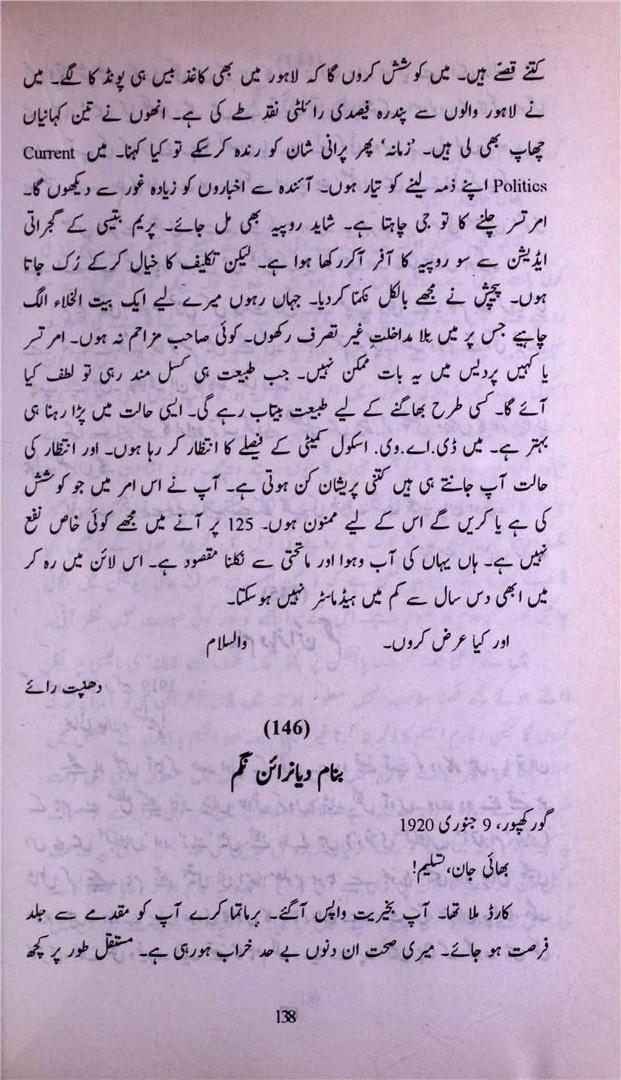 کتنے قصّے ہیں۔ میں کوشش کروں گا کہ لاہور میں بھی کاغذ بیس ہی پونڈ کا لگے۔ میں
نے لاہور والوں سے پندرہ فیصدی رائلٹی نقد طے کی ہے۔ انھوں نے تین کہانیاں
چھاپ بھی لی ہیں۔ ’زمانہ‘ پھر پرانی شان کو زندہ کرسکے تو کیا کہنا۔ میں Current
Politics اپنے ذمہ لینے کو تیار ہوں۔ آئندہ سے اخباروں کو زیادہ غور سے دیکھوں گا۔
امرتسر چلنے کا تو جی چاہتا ہے۔ شاید روپیہ بھی مل جائے۔ پریم بتیسی کے گجراتی
ایڈیشن سے سو روپیہ کا آفر آکر رکھا ہوا ہے۔ لیکن تکلیف کا خیال کرکے رُک جاتا
ہوں۔ پیچش نے مجھے بالکل نکمّا کردیا۔ جہاں رہوں میرے لیے ایک بیت الخلاء الگ
چاہیے جس پر میں بلا مداخلتِ غیر تصرف رکھوں۔ کوئی صاحب مزاحم نہ ہوں۔ امرتسر
یا کہیں پردیس میں یہ بات ممکن نہیں۔ جب طبیعت ہی کسل مند رہی تو لطف کیا
آئے گا۔ کسی طرح بھاگنے کے لیے طبیعت بیتاب رہے گی۔ ایسی حالت میں پڑا رہنا ہی
بہتر ہے۔ میں ڈی.اے.وی. اسکول کمیٹی کے فیصلے کا انتظار کر رہا ہوں۔ اور انتظار کی
حالت آپ جانتے ہی ہیں کتنی پریشان کن ہوتی ہے۔ آپ نے اس امر میں جو کوشش
کی ہے یا کریں گے اس کے لیے ممنون ہوں۔ 125 پر آنے میں مجھے کوئی خاص نفع
نہیں ہے۔ ہاں یہاں کی آب و ہوا اور ماتحتی سے نکلنا مقصود ہے۔ اس لائن میں رہ کر
میں ابھی دس سال سے کم میں ہیڈماسٹر نہیں ہوسکتا۔
اور کیا عرض کروں۔ والسلام
دھنپت رائے
(146)
بنام دیا نرائن نگم
گورکھپور، 9 جنوری 1920
بھائی جان، تسلیم!
کارڈ ملا تھا۔ آپ بخیریت واپس آگئے۔ پرماتما کرے آپ کو مقدمے سے جلد
فرصت ہو جائے۔ میری صحت ان دنوں بے حد خراب ہورہی ہے۔ مستقل طور پر کچھ
138